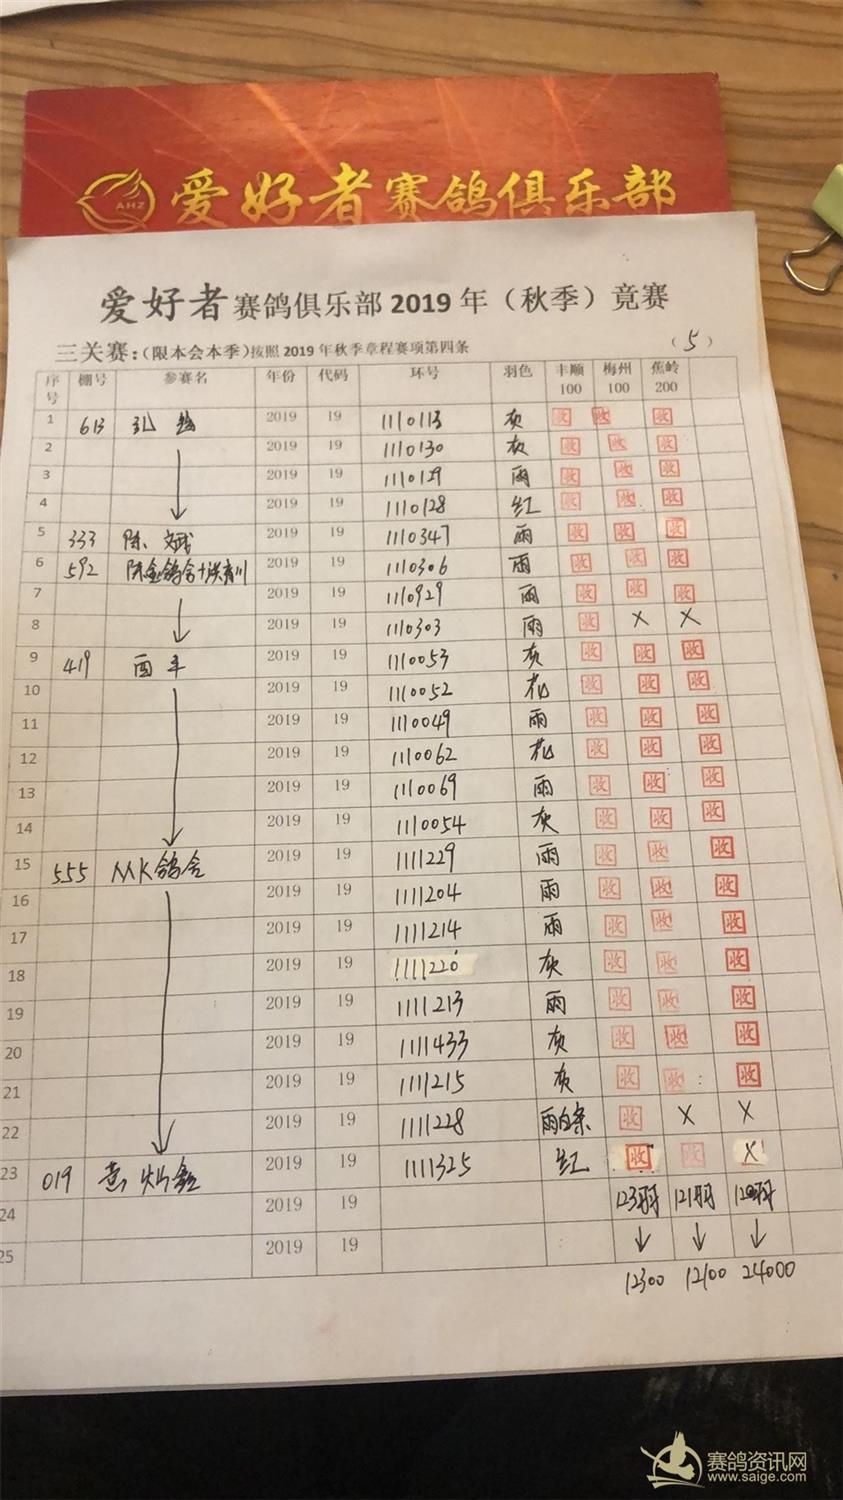 AHZ 爱好者赛鸽俱乐部
爱好者赛鸽俱乐部2019年（秋季）竟赛
三关赛：（限本会本季）按照2019年秋季章程赛项第四条 （5）
序号 棚号 参赛名 年份 代码 环号 羽色 丰顺100 梅州100 蕉岭200
1 613 2019 19 1110113 灰 收 收 收
2 2019 19 1110130 灰 收 收 收
3 2019 19 1110129 雨 收 收 收
4 2019 19 1110128 红 收 收 收
5 333 陈 2019 19 1110347 雨 收 收 收
6 592 陈金鸽舍+洪育川 2019 19 1110306 雨 收 收 收
7 2019 19 1110929 雨 收 收 收
8 2019 19 1110303 雨 收 X X
9 419 酉丰 2019 19 1110053 灰 收 收 收
10 2019 19 1110052 花 收 收 收
11 2019 19 1110049 雨 收 收 收
12 2019 19 1110062 花 收 收 收
13 2019 19 1110069 雨 收 收 收
14 2019 19 1110054 灰 收 收 收
15 555 MK鸽舍 2019 19 1111229 雨 收 收 收
16 2019 19 1111204 雨 收 收 收
17 2019 19 1111214 雨 收 收 收
18 2019 19 1111220 灰 收 收 收
19 2019 19 1111213 雨 收 收 收
20 2019 19 1111433 灰 收 收 收
21 2019 19 1111215 灰 收 收 收
22 2019 19 1111228 雨白条 收 X X
23 019 2019 19 1111325 红 收 收 X
24 2019 19 123羽 121羽 120羽
25 2019 19
12300 12100 24000
赛鸽资讯网
www.saige.com